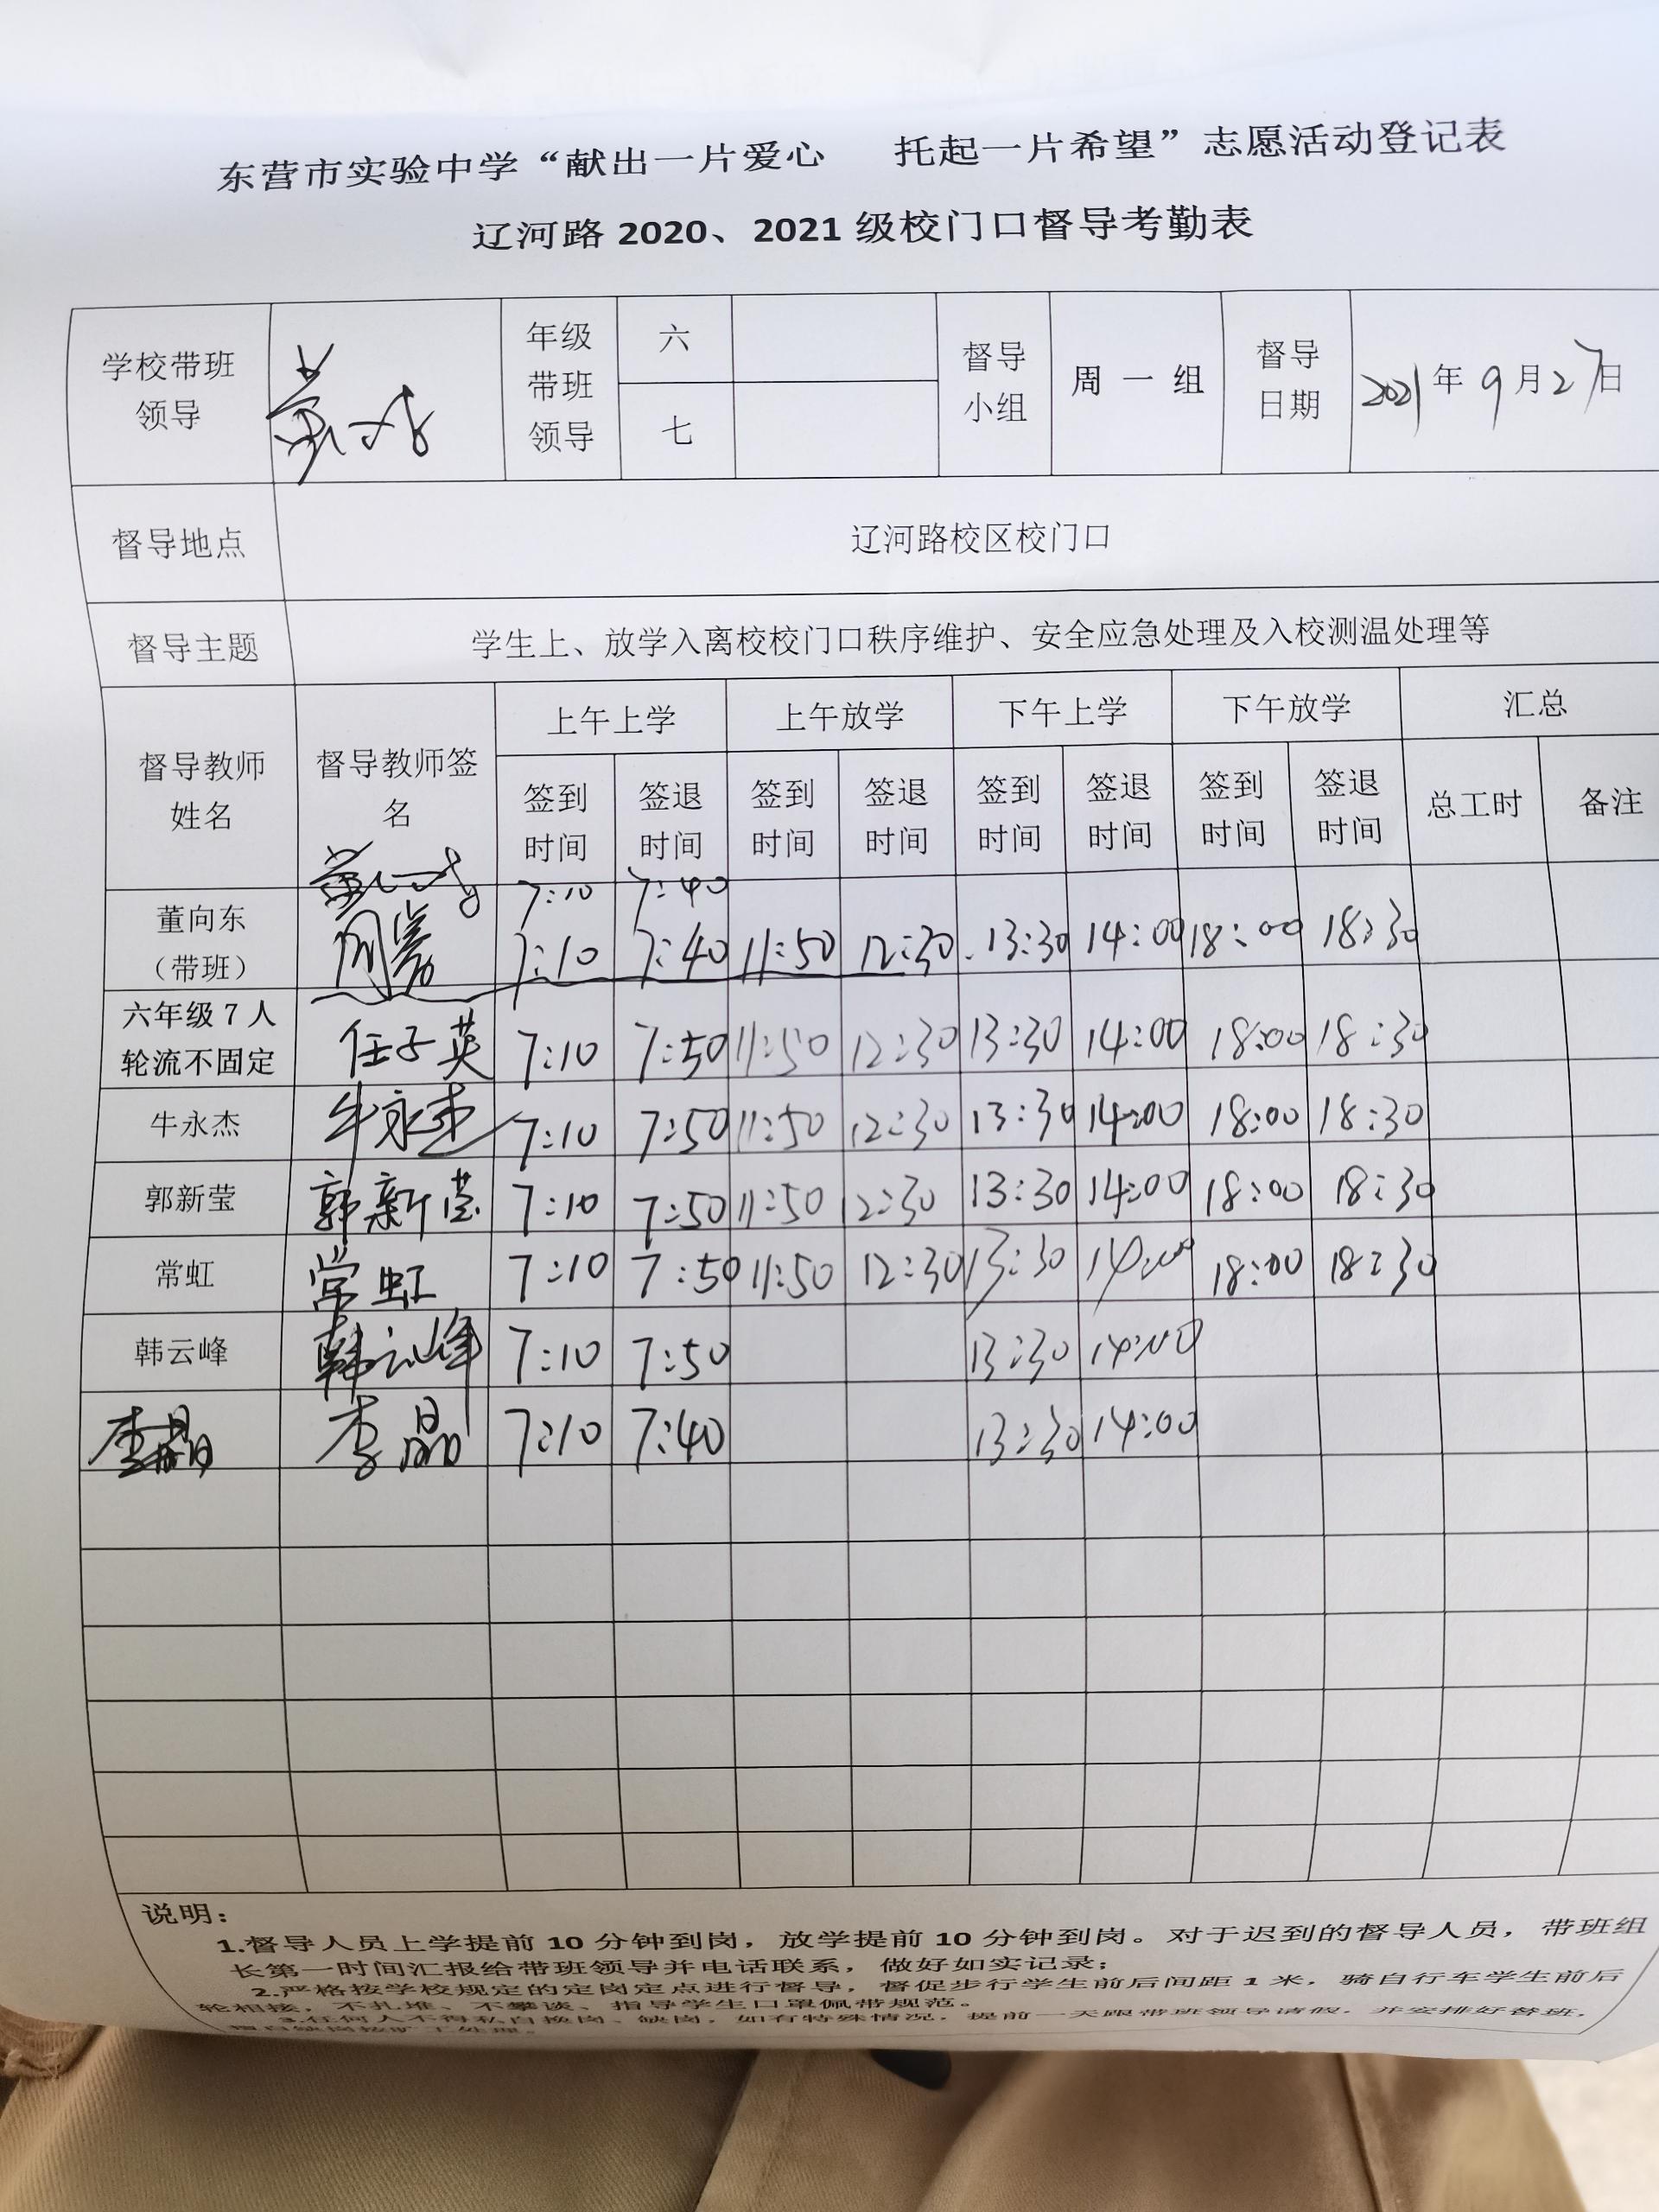 东营市实验中学“献出一片爱心 托起一片希望”志愿活动登记表
辽河路 2020、2021 级校门口督导考勤表
学校带班领导 年级带班领导 六 七 督导小组 周一组 督导日期 2021年9月27日
督导地点 辽河路校区校门口
督导主题 学生上、放学入离校校门口秩序维护、安全应急处理及入校测温处理等
督导教师姓名 督导教师签名 上午上学 上午放学 下午上学 下午放学 汇总
签到时间 签退时间 签到时间 签退时间 签到时间 签退时间 签到时间 签退时间 总工时 备注
7:10 7:40
董向东（带班） 7:10 7:40 11:50 12:30 13:30 14:00 18:00 18:30
六年级 7 人轮流不固定 任子英 7:10 7:50 11:50 12:30 13:30 14:00 18:00 18:30
牛永杰 牛永杰 7:10 7:50 11:50 12:30 13:30 14:00 18:00 18:30
郭新莹 郭新莹 7:10 7:50 11:50 12:30 13:30 14:00 18:00 18:30
常虹 常虹 7:10 7:50 11:50 12:30 13:30 14:00 18:00 18:30
韩云峰 韩云峰 7:10 7:50 13:30 14:00
李晶 李晶 7:10 7:40 13:30 14:00
说明：
1.督导人员上学提前 10 分钟到岗，放学提前 10 分钟到岗。对于迟到的督导人员，带班组
长第一时间汇报给带班领导并电话联系，做好如实记录；
2.严格按学校规定的定岗定点进行督导，督促步行学生前后间距 1 米，骑自行车学生前后
轮相接，不扎堆、不攀谈、指导学生口罩佩带规范。
3.任何人不得私自换岗、缺岗，如有特殊情况，提前一天跟带班领导请假，并安排好替班，